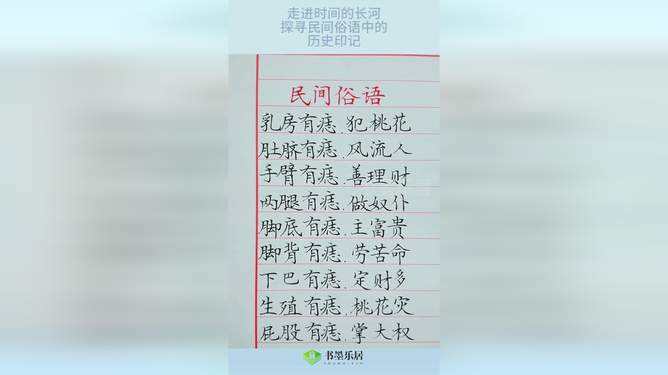 走进时间的长河
探寻民间俗语中的
历史印记
民间俗语
乳房有痣.犯桃花
肚脐有痣.风流人
手臂有痣.善理财
两腿有痣.做奴仆
脚底有痣.主富贵
脚背有痣.劳苦命
下巴有痣.定财多
生殖有痣.桃花灾
屁股有痣.掌大权
书墨乐居